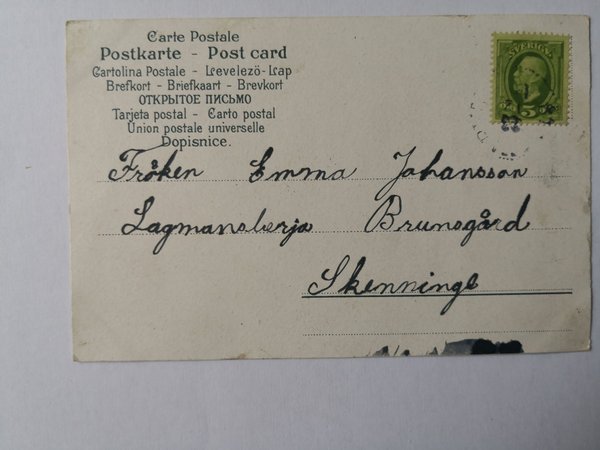 Carte Postale
Postkarte - Post card
Cartolina Postale - Levelezö-Lap
Brefkort - Briefkaart - Brevkort
ОТКРЫТОЕ ПИСЬМО
Tarjeta postal - Carto postal
Union postale universelle
Dopisnice.
SVERIGE
5 5
Fröken Emma Johansson
Lagmansberja Brunsgård
Skenninge